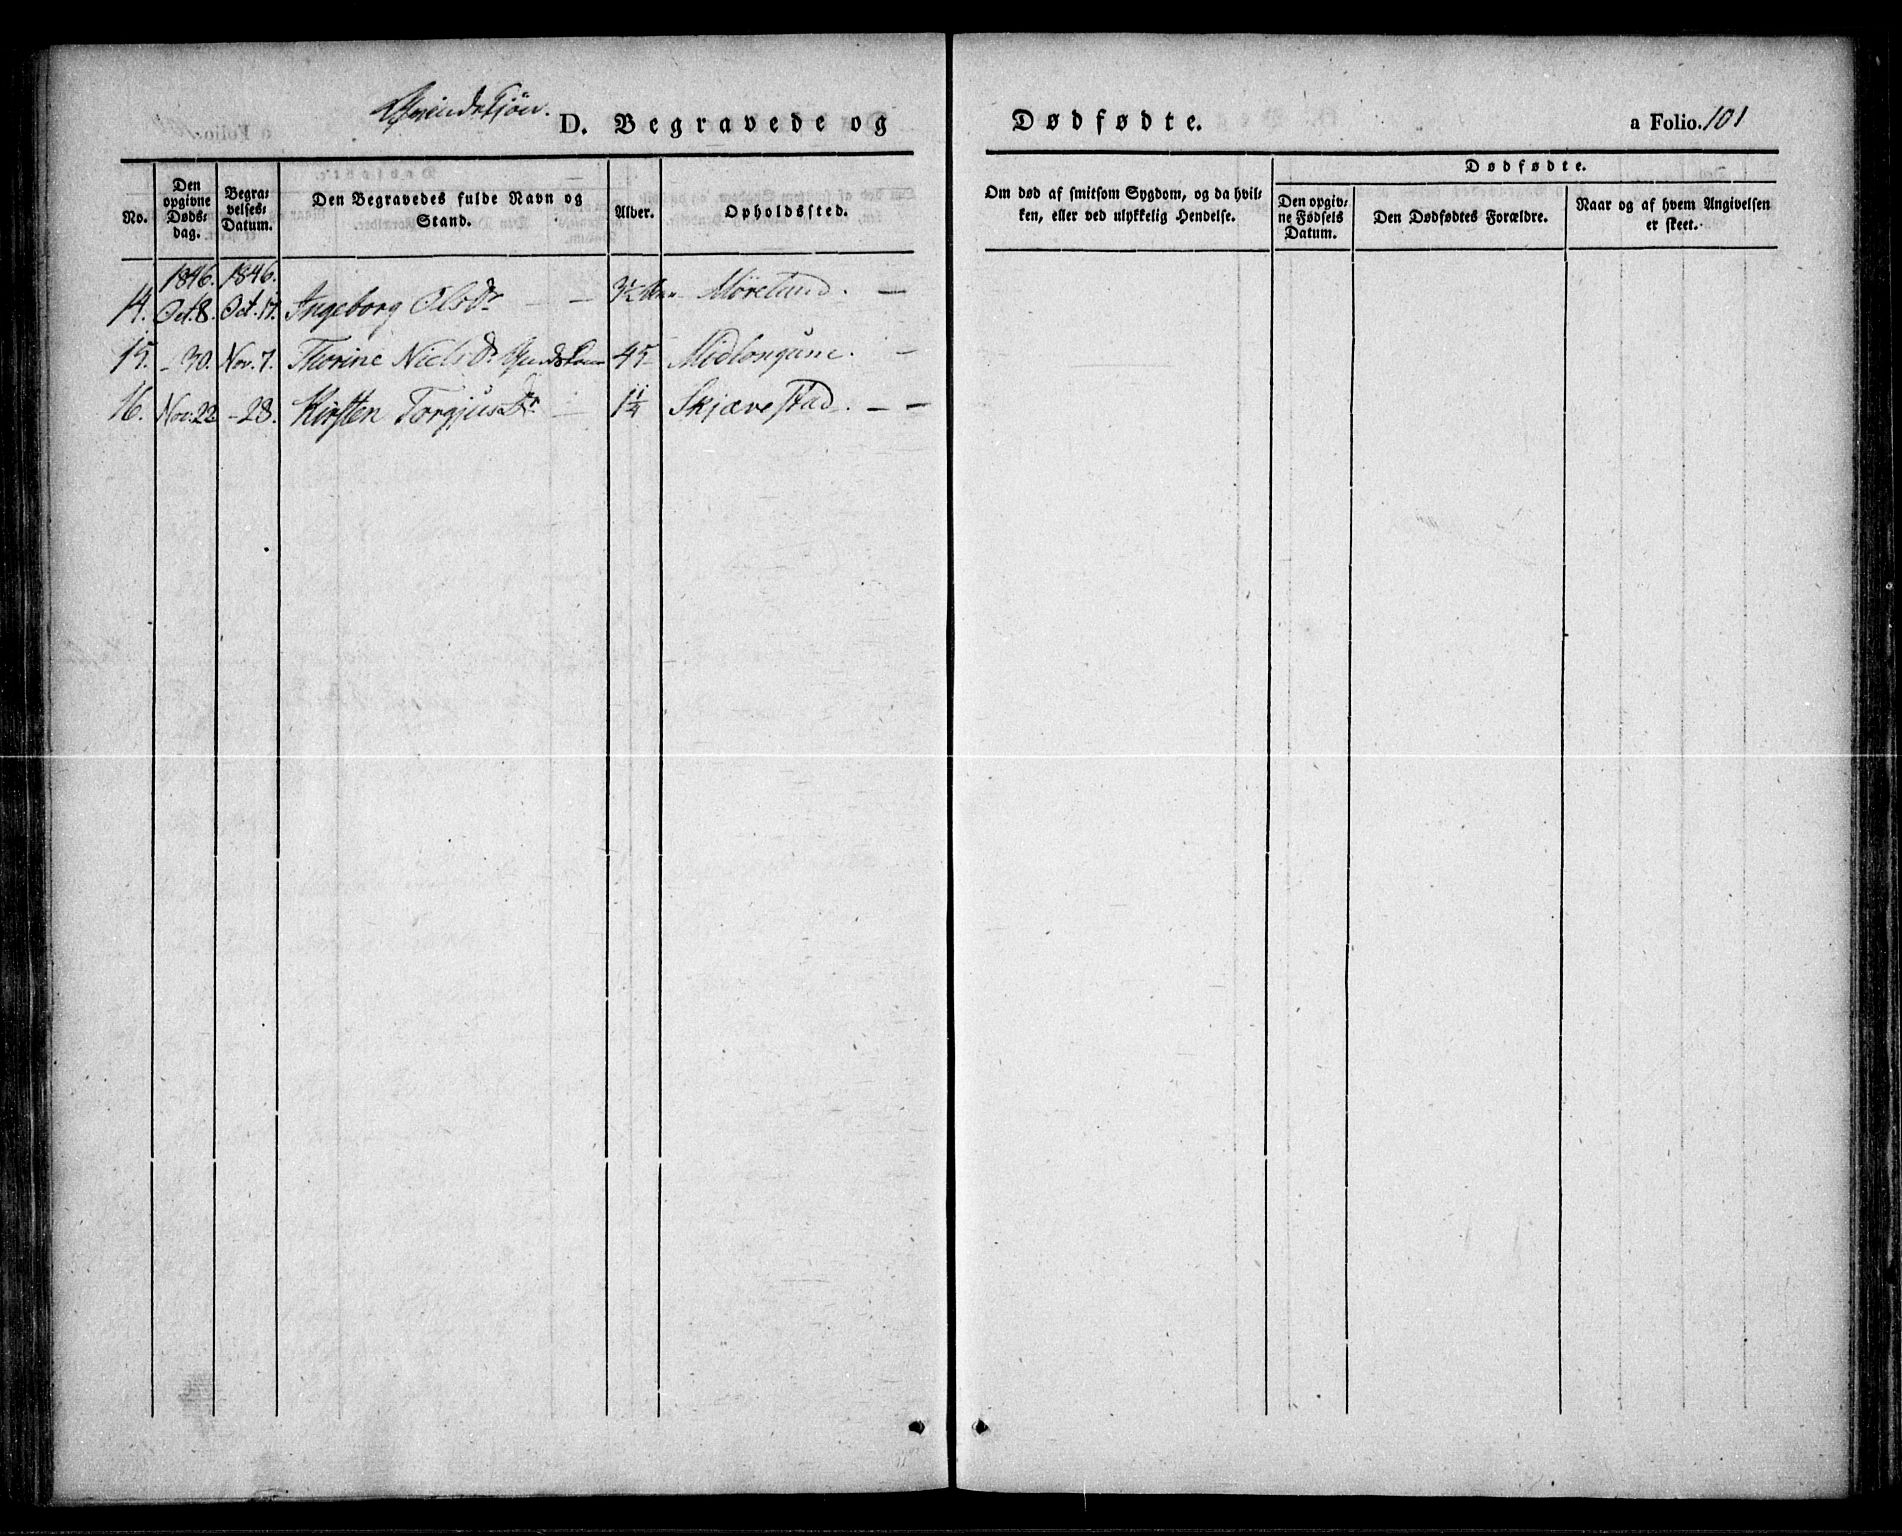 D. Begravede og Dødfødte.
a Folio. 101
No.
Den opgivne Døds: dag.
Begra: velses: Datum.
Den Begravedes fulde Navn og Stand.
Alder.
Opholdssted.
Om død af smitsom Sygdom, og da hvil: ken, eller ved ulykkelig Hendelse.
Dødfødte.
Den opgiv: ne Fødsels Datum.
Den Dødfødtes Forældre.
Naar og af hvem Angivelsen er skeet.
1846. 1846.
14. Oct. 8. Oct. 17. Ingeborg OlsDr — — 3½ Møretund. —
15. - 30. Nov. 7. Thorine Niels Dr 45 Midlongum. —
16. Nov. 22 - 28. Kirsten TorgjusDr. — 1¼ Skjævestad. — —